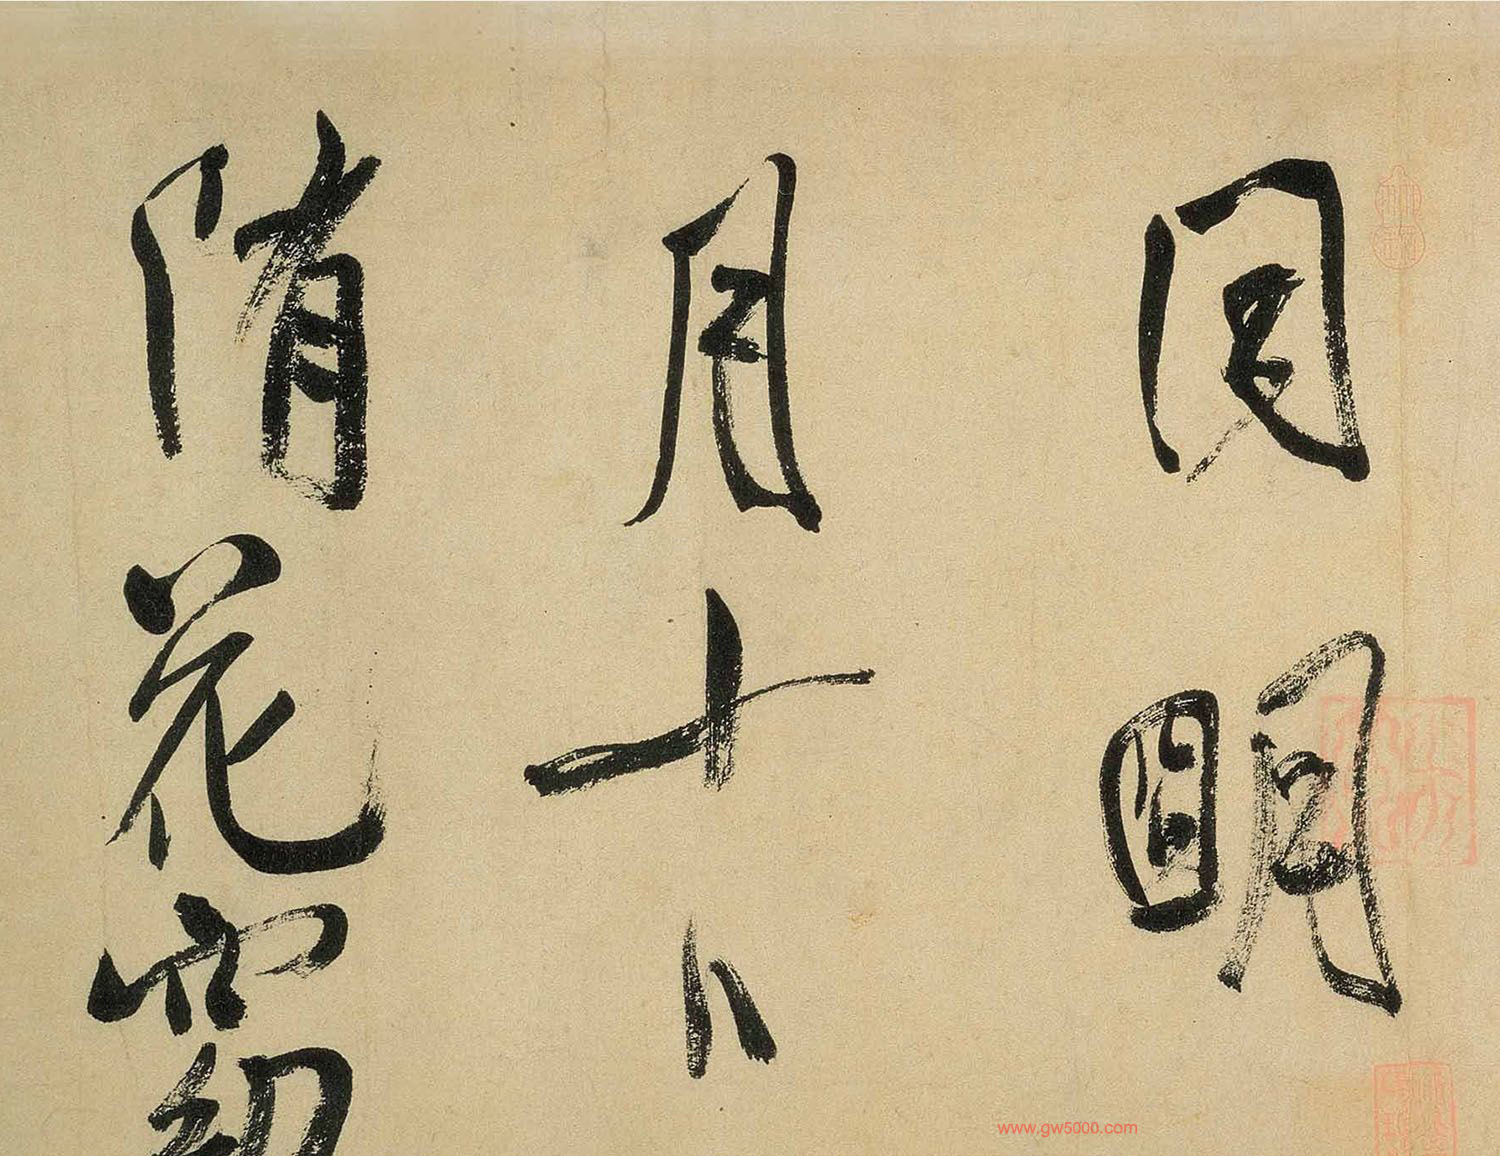 同明
月十日
隋花窈
www.gw5000.com